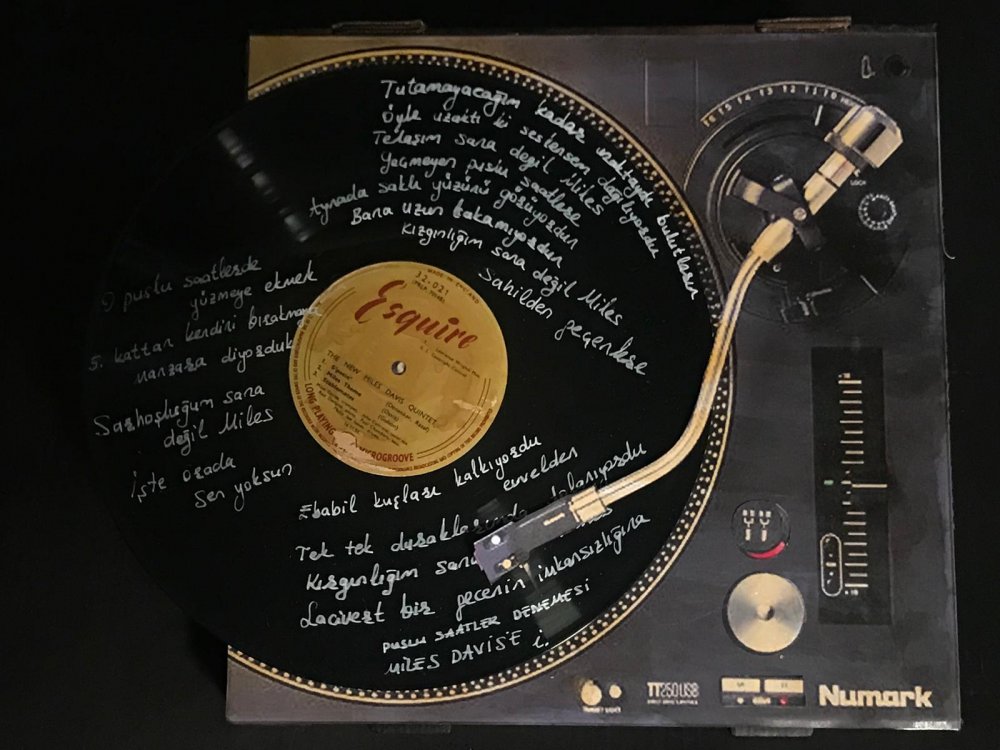 Tutamayacağım kadar uzaktaydı bulutların
Öyle uzaktı ki seslensem dağılıyordu
Telaşım sana değil Miles
Geçmeyen puslu saatlere
Aynada saklı yüzünü görüyordun
Bana uzun bakamıyordun
Kızgınlığım sana değil Miles
Sahilden geçenlere
puslu saatlerde
yüzmeye ekmek
5. kattan kendini bırakmaya
manzara diyorduk
Sarhoşluğum sana
değil Miles
İşte orada
Sen yoksun
Ebabil kuşları kalkıyordu
evvelden
Tek tek
Kızgınlığım
Lacivert bir gecenin imkansızlığına
PUSLU SAATLER DENEMESİ
MILES DAVISE
MADE IN ENGLAND
32-021
Esquire
THE NEW MILES DAVIS QUINTET
LONG PLAYING MICROGROOVE
16 15 14 13 12 11 10
LOCK
Numark
TT250USB
Numark